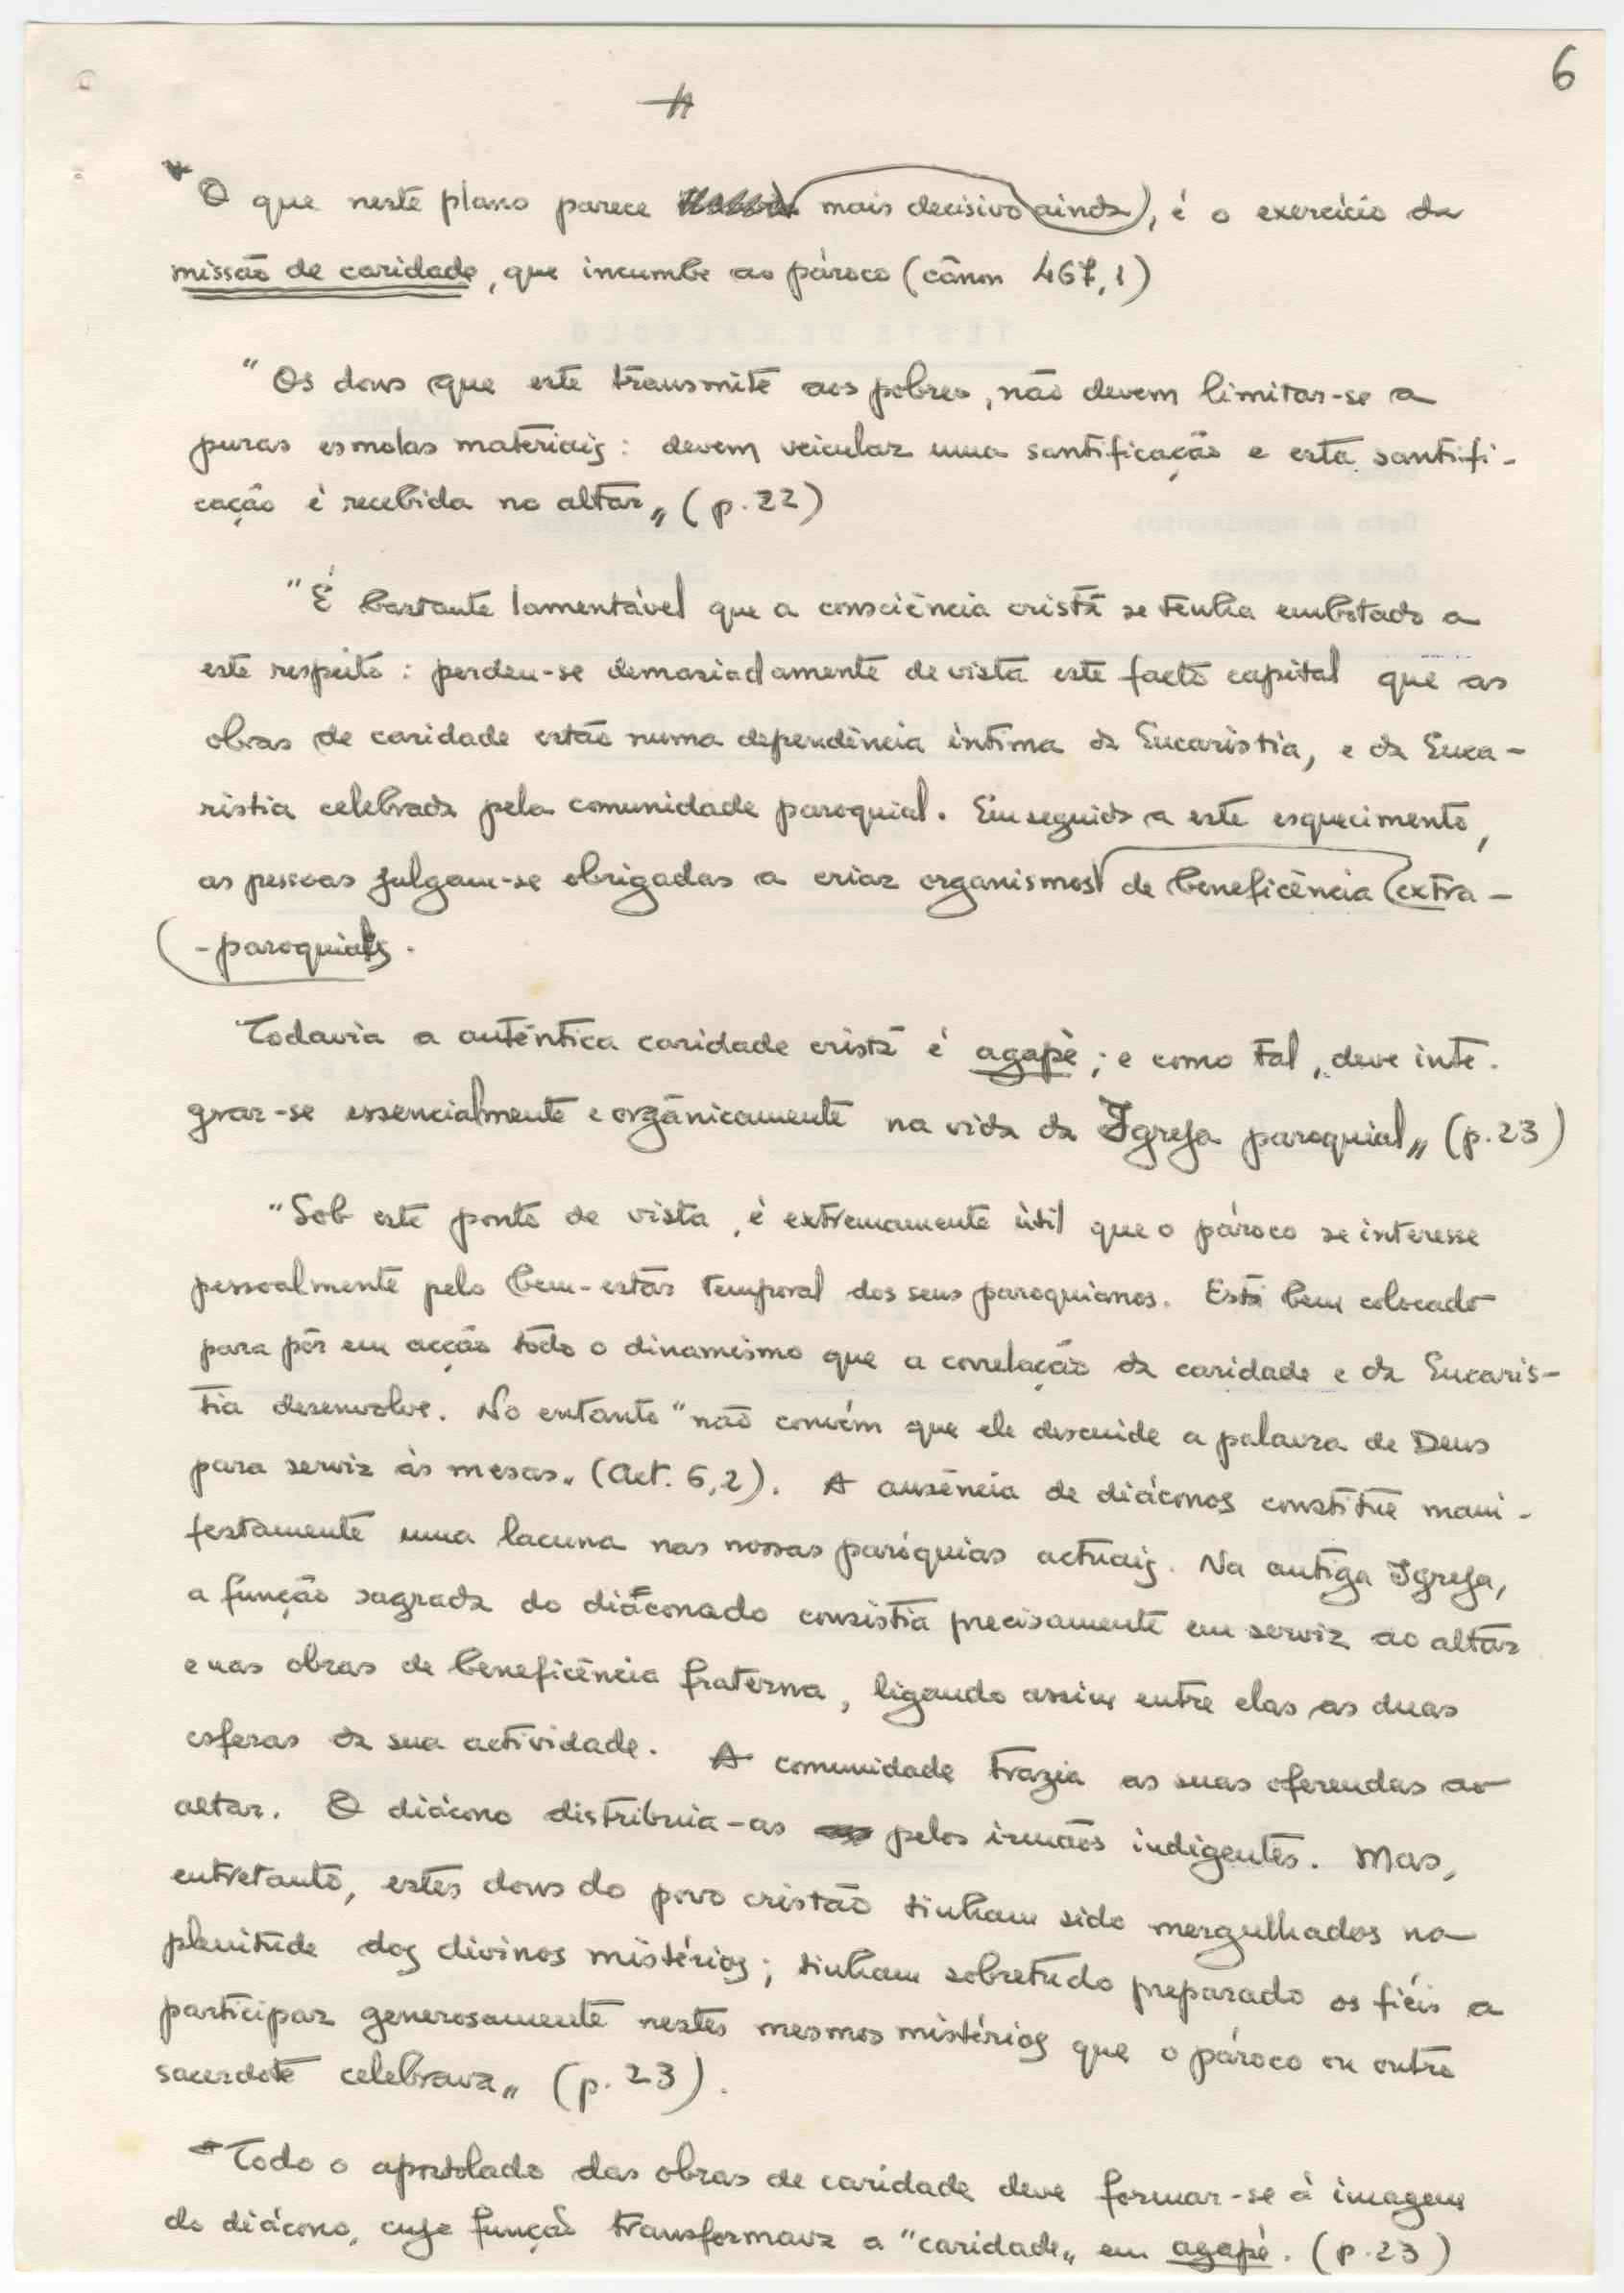 6
O que neste plano parece mais decisivo ainda), é o exercício da
missão de caridade, que incumbe ao pároco (cânon 467,1)
"Os dons que este transmite aos pobres, não devem limitar-se a
puras esmolas materiais: devem veicular uma santificação e esta santifi-
cação é recebida no altar„ (p. 22)
"É bastante lamentável que a consciência cristã se tenha embotado a
este respeito: perdeu-se demasiadamente de vista este facto capital que as
obras de caridade estão numa dependência íntima da Eucaristia, e da Euca-
ristia celebrada pela comunidade paroquial. Em seguida a este esquecimento,
as pessoas julgam-se obrigadas a criar organismos de beneficência extra-
-paroquiais.
Todavia a autêntica caridade cristã é agapè; e como tal, deve inte-
grar-se essencialmente e orgânicamente na vida da Igreja paroquial„ (p. 23)
"Sob este ponto de vista, é extremamente útil que o pároco se interesse
pessoalmente pelo bem-estar temporal dos seus paroquianos. Está bem colocado
para pôr em acção todo o dinamismo que a correlação da caridade e da Eucaris-
tia desenvolve. No entanto "não convém que ele descuide a palavra de Deus
para servir às mesas„ (Act. 6,2). A ausência de diáconos constitue mani-
festamente uma lacuna nas nossas paróquias actuais. Na antiga Igreja,
a função sagrada do diaconado consistia precisamente em servir ao altar
e nas obras de beneficência fraterna, ligando assim entre elas as duas
esferas da sua actividade. A comunidade trazia as suas oferendas ao
altar. O diácono distribuia-as pelos irmãos indigentes. Mas,
entretanto, estes dons do povo cristão tinham sido mergulhados na
plenitude dos divinos mistérios; tinham sobretudo preparado os fiéis a
participar generosamente nestes mesmos mistérios que o pároco ou outro
sacerdote celebrava„ (p. 23).
Todo o apostolado das obras de caridade deve formar-se à imagem
do diácono, cuja função transformava a "caridade„ em agapé. (p. 23)